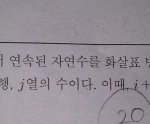 연속된 자연수를 화살표
행, j열의 수이다. 이때, i+
20